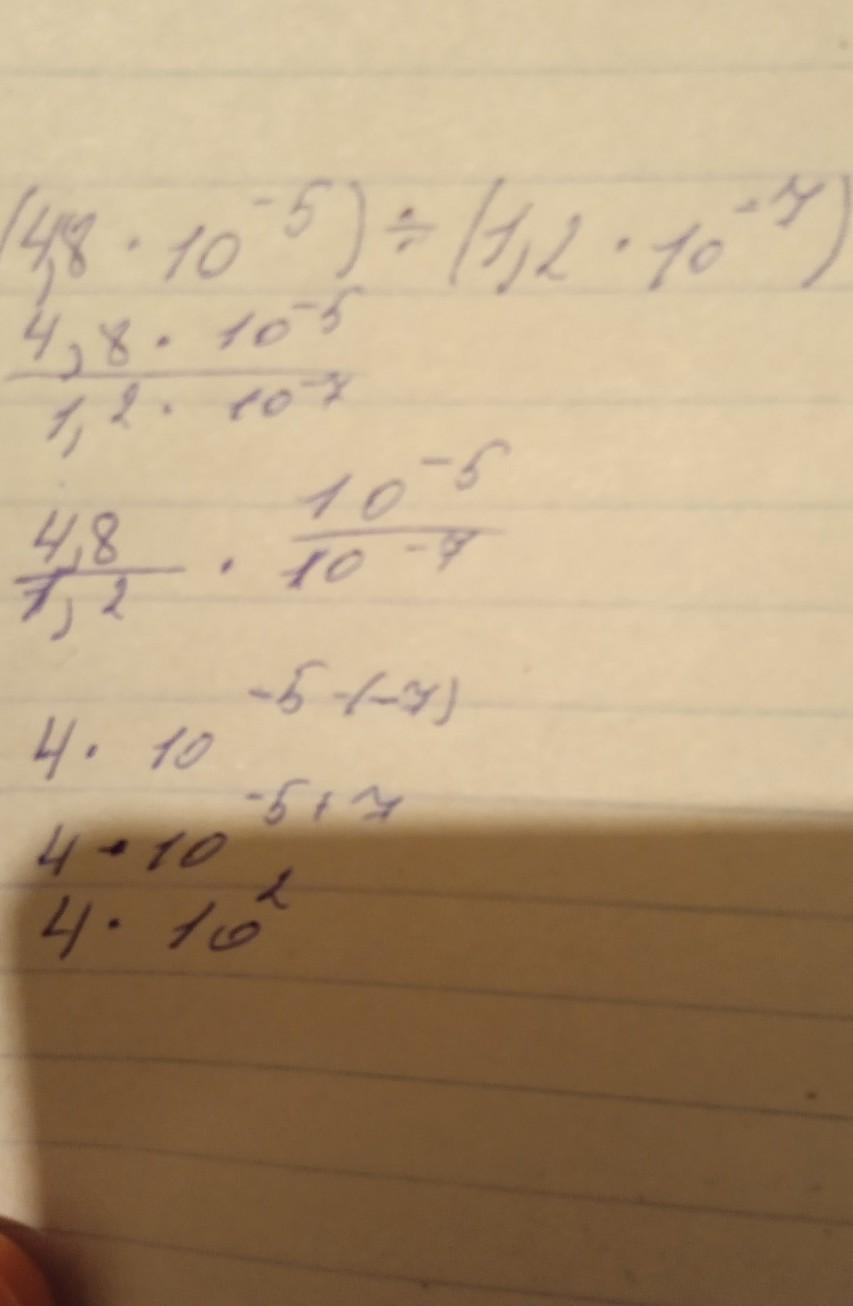 (4,8 · 10⁻⁵) ÷ (1,2 · 10⁻⁷)
4,8 · 10⁻⁵ / 1,2 · 10⁻⁷
4,8 / 1,2 · 10⁻⁵ / 10⁻⁷
4 · 10⁻⁵⁻⁽⁻⁷⁾
4 · 10⁻⁵⁺⁷
4 · 10²